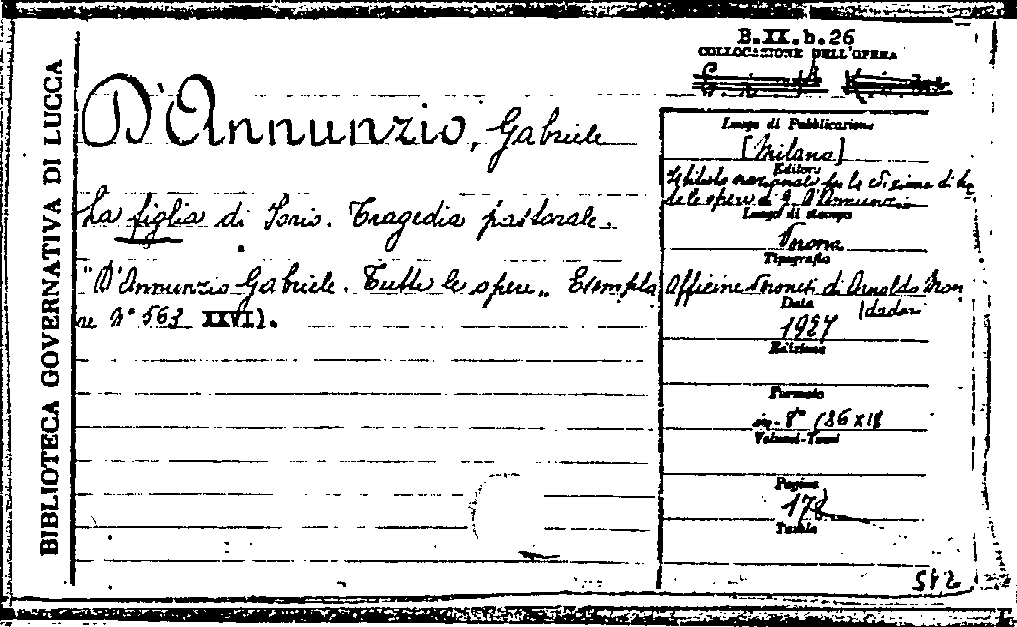 BIBLIOTECA GOVERNATIVA DI LUCCA
B.XX.b.26
COLLOCAZIONE DELL'OPERA
D'Annunzio, Gabriele
La figlia di Iorio. Tragedia pastorale.
"D'Annunzio Gabriele. Tutte le opere„ Esempla
re N° 563 XXVI).
Luogo di Pubblicazione
[Milano]
Editore
Istituto nazionale per la edizione di tutte
le opere di G. D'Annunzio
Luogo di stampa
Verona
Tipografia
Officine Veronesi di Arnoldo Mon
dadori
Data
1927
Edizione
Formato
in-8° (26x18
Volumi-Tomi
Pagine
178
Tavole